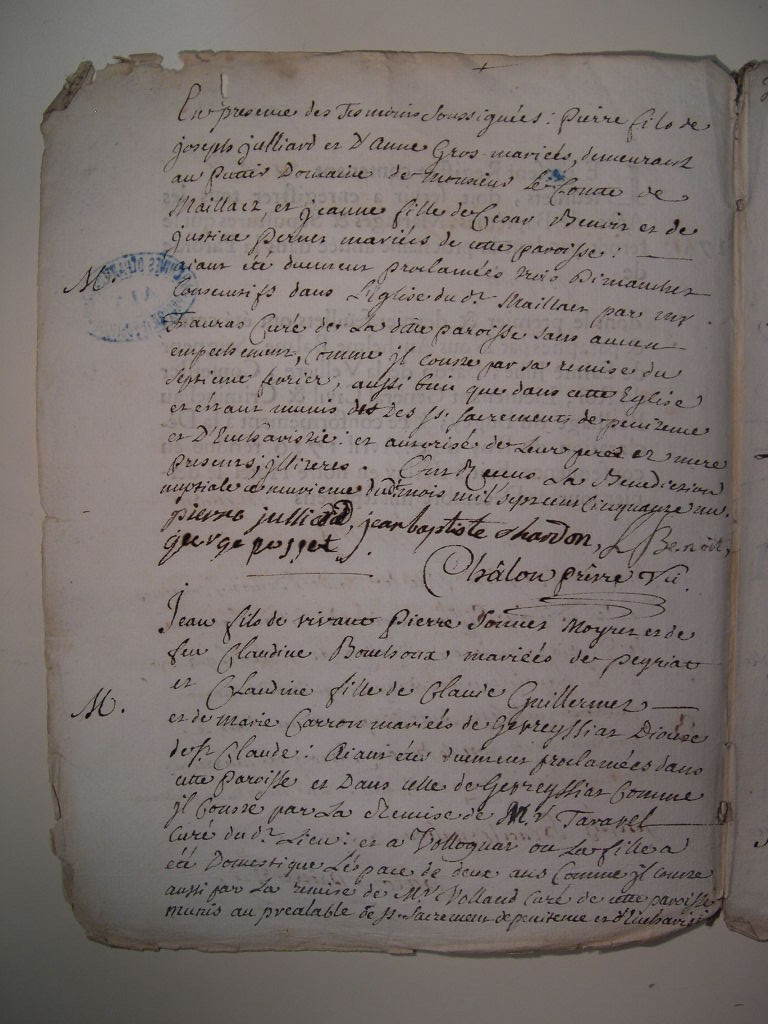 En presence des Temoins Soussignées : pierre fils de
joseph julliard et D'anne Gros mariées, demeurant
au puttis Domaine de Monsieur Le Comte de
Maillact, et jeanne fille de Cesar Benoit et de
justine perret mariées de cette paroisse :
aiant été duement proclamées trois Dimanches
Consecutifs dans L'Eglise du dt Maillact par mr
Curé de La dite paroisse sans aucun
empechement, Comme jl conste par sa remise du
septieme fevrier, aussi bien que dans cette Eglise
et étant munis des Sts sacrements de penitence
et D'Eucharistie : et autorisé de Leur pere et mere
presents, jlliteres. Ont Recus La Benediction
nuptiale ce neuvieme dud. mois mil sept cent Cinquante un.
pierre julliard, jean baptiste chardon, Benoit,
george posset
Châlon prêtre Vic.
Jean fils de vivant Pierre Sonnet Moyret et de
feu Claudine Bouchoux mariées de peyriat
M.
et Claudine fille de Claude Guillermet
et de marie Carron mariées de Gevreyssiat Diocese
de St Claude : Aiant étés duement proclamées dans
cette Paroisse et Dans celle de Gevreyssiat Comme
jl Conste par La Remise de Mr Tavarel
Curé du dt Lieu : et a Vollognat ou La fille a
été Domestique L'espace de deux ans Comme jl conste
aussi par La remise de Mr Volland Curé de cette paroisse
munis au prealable de Sts Sacrement de penitence et d'Eucharisti